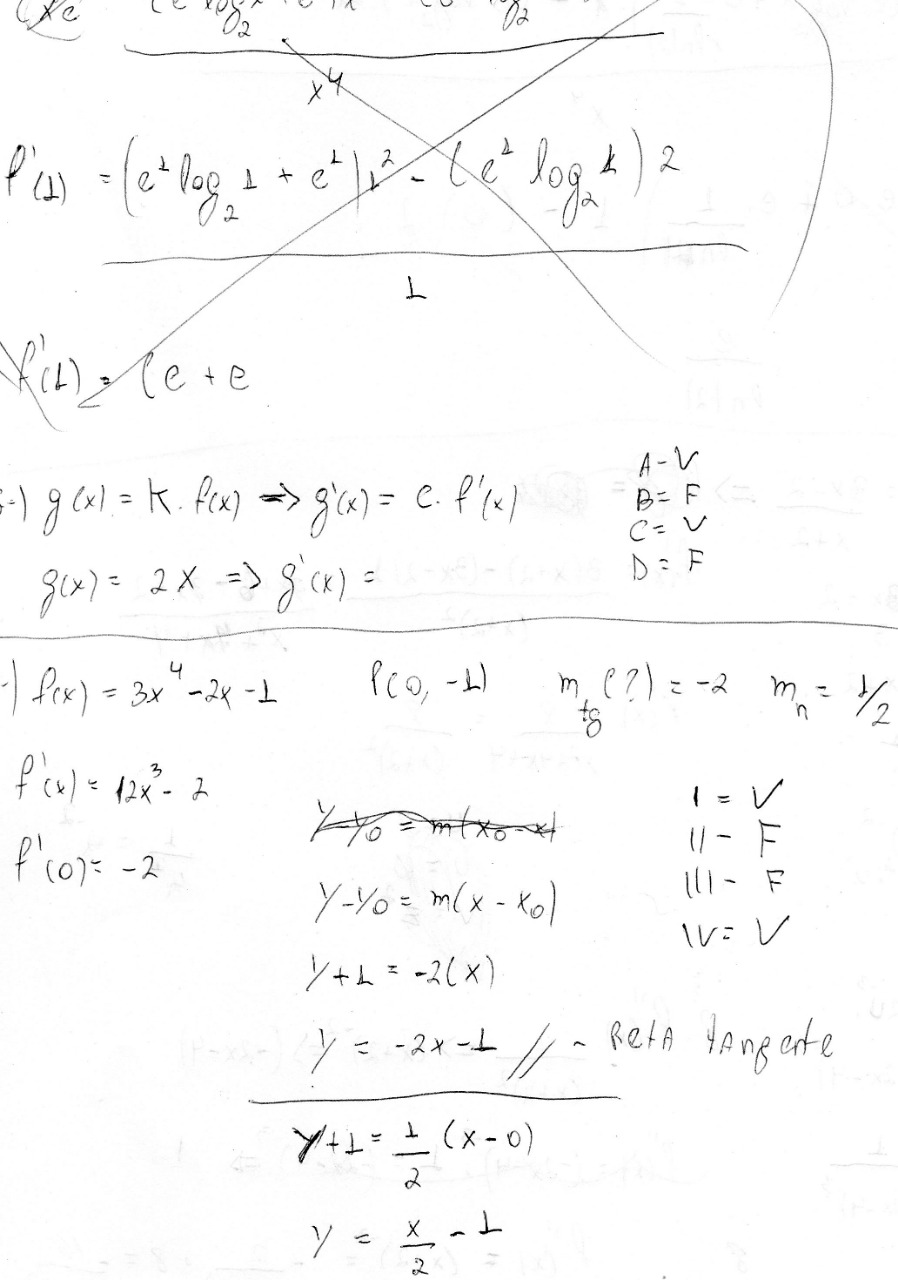 x⁴
f'(1) = (e¹ log₂ 1 + e¹) 1² - (e¹ log₂ 1) 2
1
f'(1) = (e + e
-) g(x) = K . f(x) => g'(x) = c. f'(x)
g(x) = 2x => g'(x) =
A - V
B = F
C = V
D = F
-) f(x) = 3x⁴ - 2x - 1 P(0, -1) m_tg (?) = -2 m_n = 1/2
f'(x) = 12x³ - 2
f'(0) = -2
y - y₀ = m(x₀ - x)
y - y₀ = m(x - x₀)
y + 1 = -2(x)
y = -2x - 1 // ~ Reta tangente
I = V
II - F
III - F
IV = V
y + 1 = 1/2 (x - 0)
y = x/2 - 1